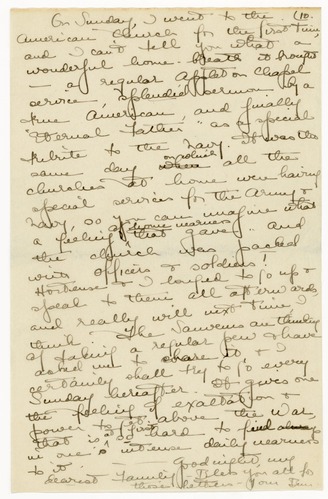 On Sunday, I went to the (10.
American Church for the first time,
and I can't tell you what a
wonderful home-breath it brought
— a regular Appleton Chapel
service, splendid sermon by a
true American, and finally
"Eternal Father" as a special
tribute to the Navy. It was the
same day on which all the
churches at home were having
special services for the Army &
Navy, so you can imagine what
a feeling of home nearness that gave and
the church was packed
with officers & soldiers!
Hortense & I longed to go up &
speak to them all afterwards,
and really will next time I
think. The are thinking
of taking a regular pew & have
asked me to share it, & I
certainly shall try to go every
Sunday hereafter. It gives one
the feeling of exaltation &
power to get above the War
that is so hard to find
in one's intense daily nearness
to it. — Goodnight, my
dearest Family, Bless you all for
those letters — Your